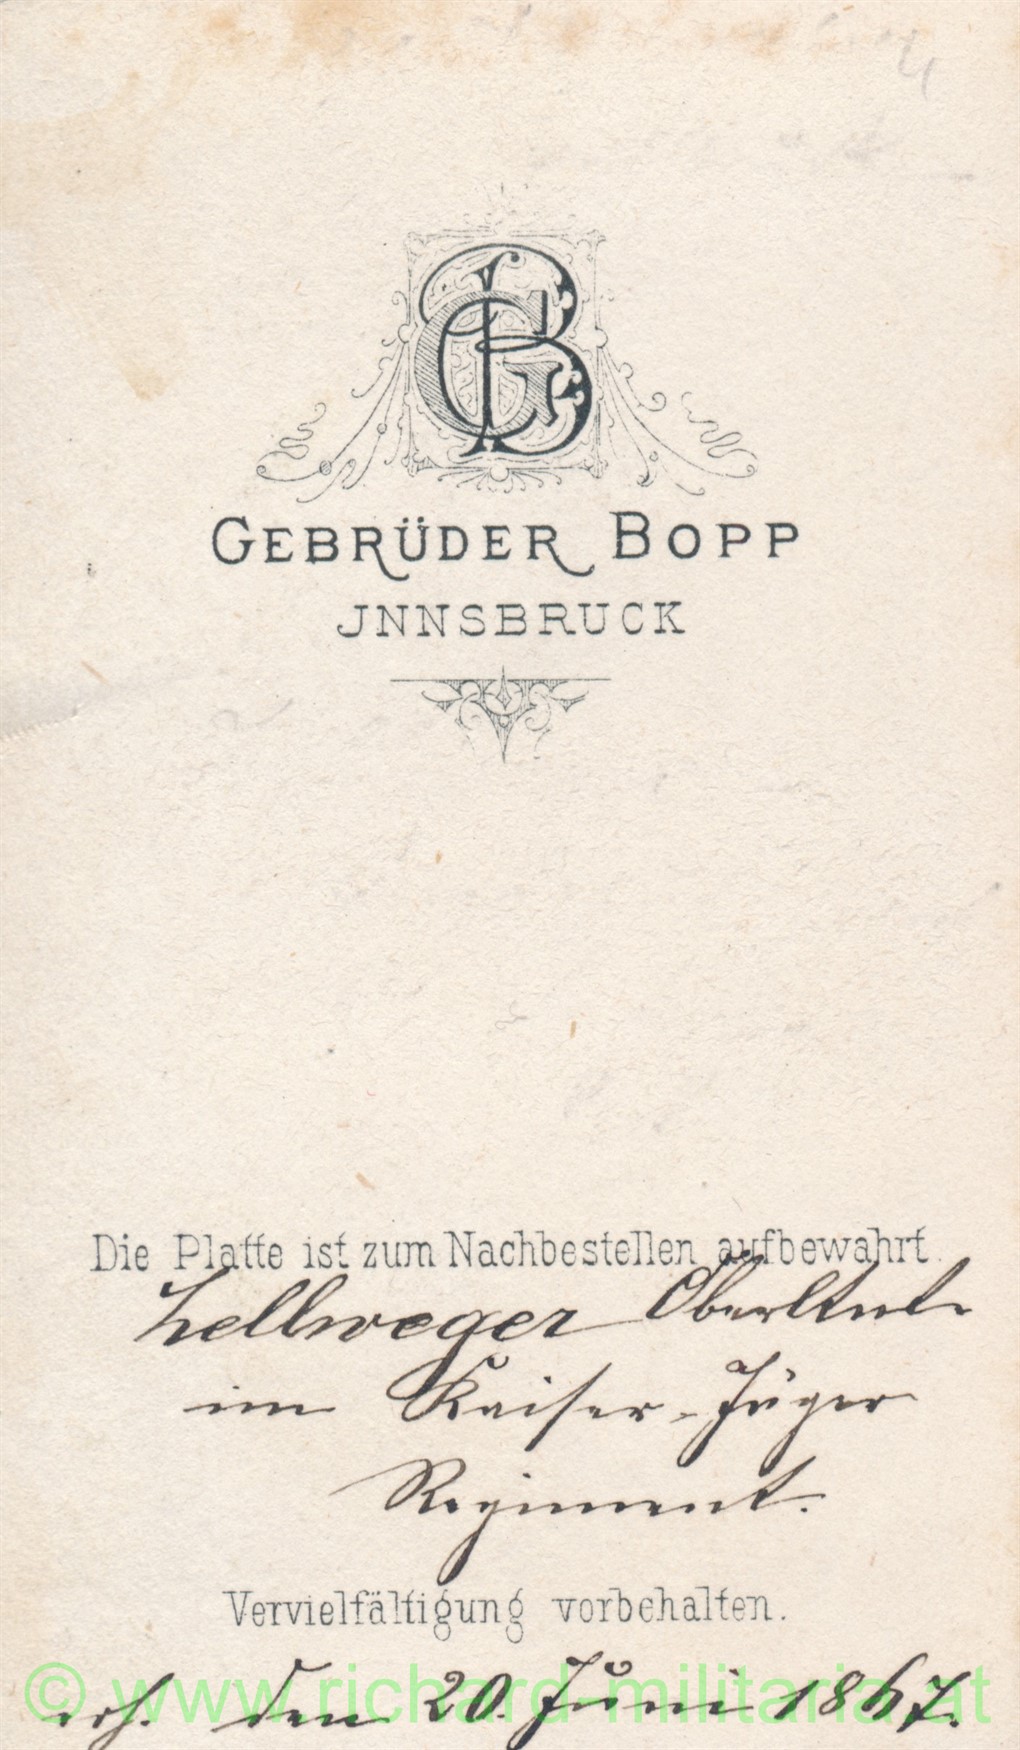 GB
GEBRÜDER BOPP
JNNSBRUCK
Die Platte ist zum Nachbestellen aufbewahrt.
Zellweger Oberltnt.
im Kaiser-Jäger
Regiment.
Vervielfältigung vorbehalten.
erh. den 20. Juni 1867.
© www.richard-militaria.at